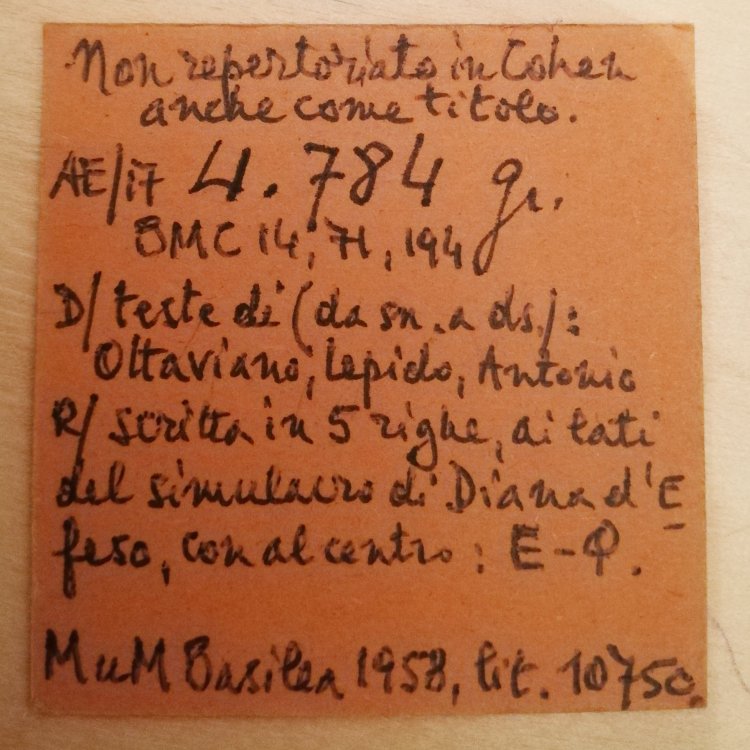 Non repertoriato in Cohen
anche come titolo.
AE/17 4.784 gr.
BMC 14, 71, 194
D/ teste di (da sn. a ds.):
Ottaviano, Lepido, Antonio
R/ scritta in 5 righe, ai lati
del simulacro di Diana d'E
feso, con al centro: E-Φ.
MuM Basilea 1958, lit. 10750.